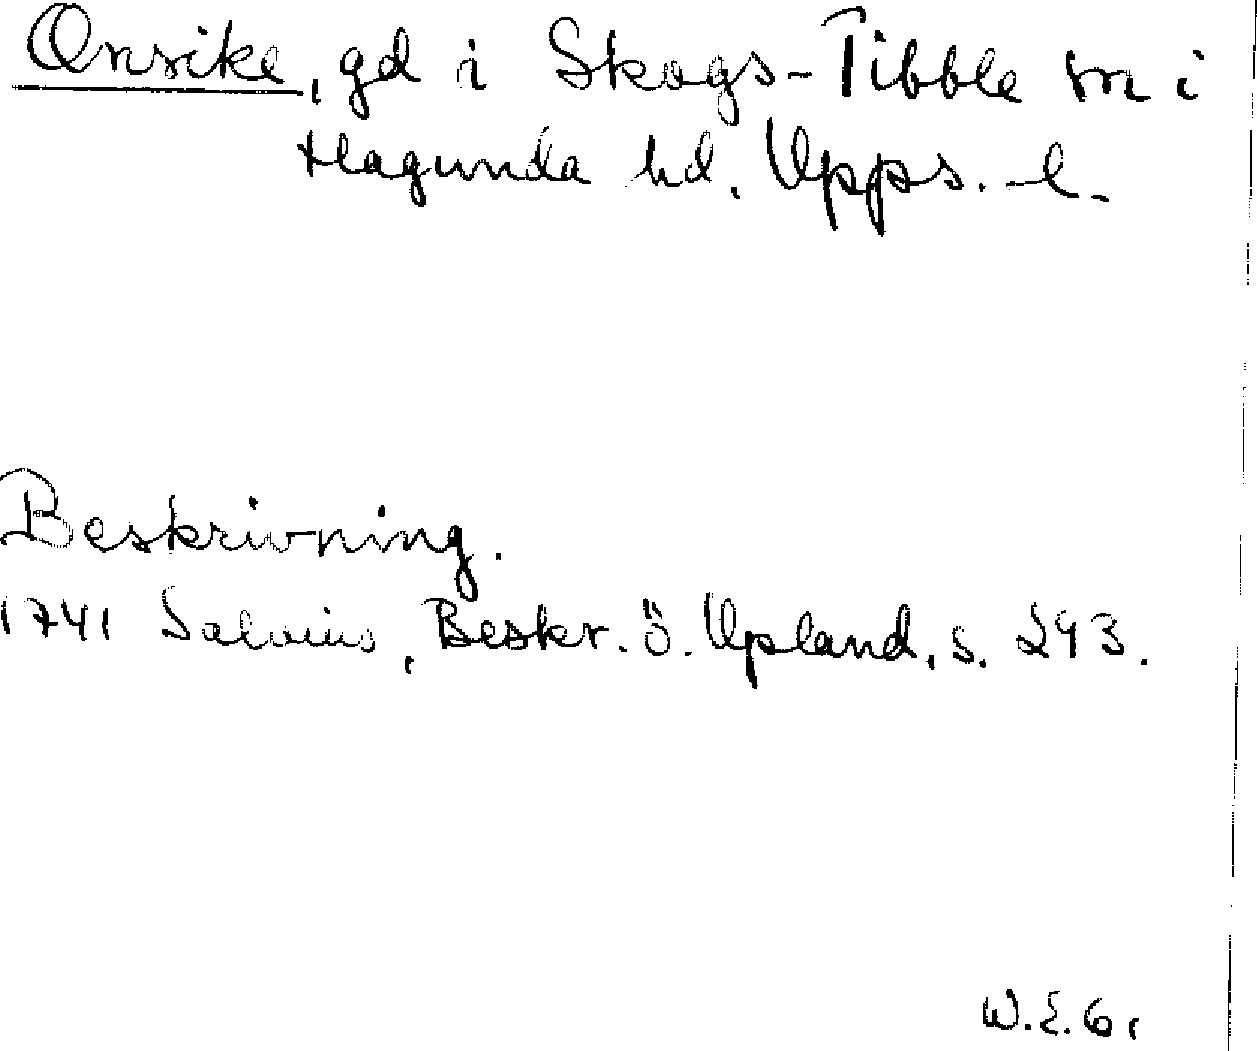 Onsike, gd i Skogs-Tibble sn i
Hagunda hd. Upps. l.
Beskrivning.
1741 Salvius, Beskr. ö. Upland, s. 293.
W.E.G.